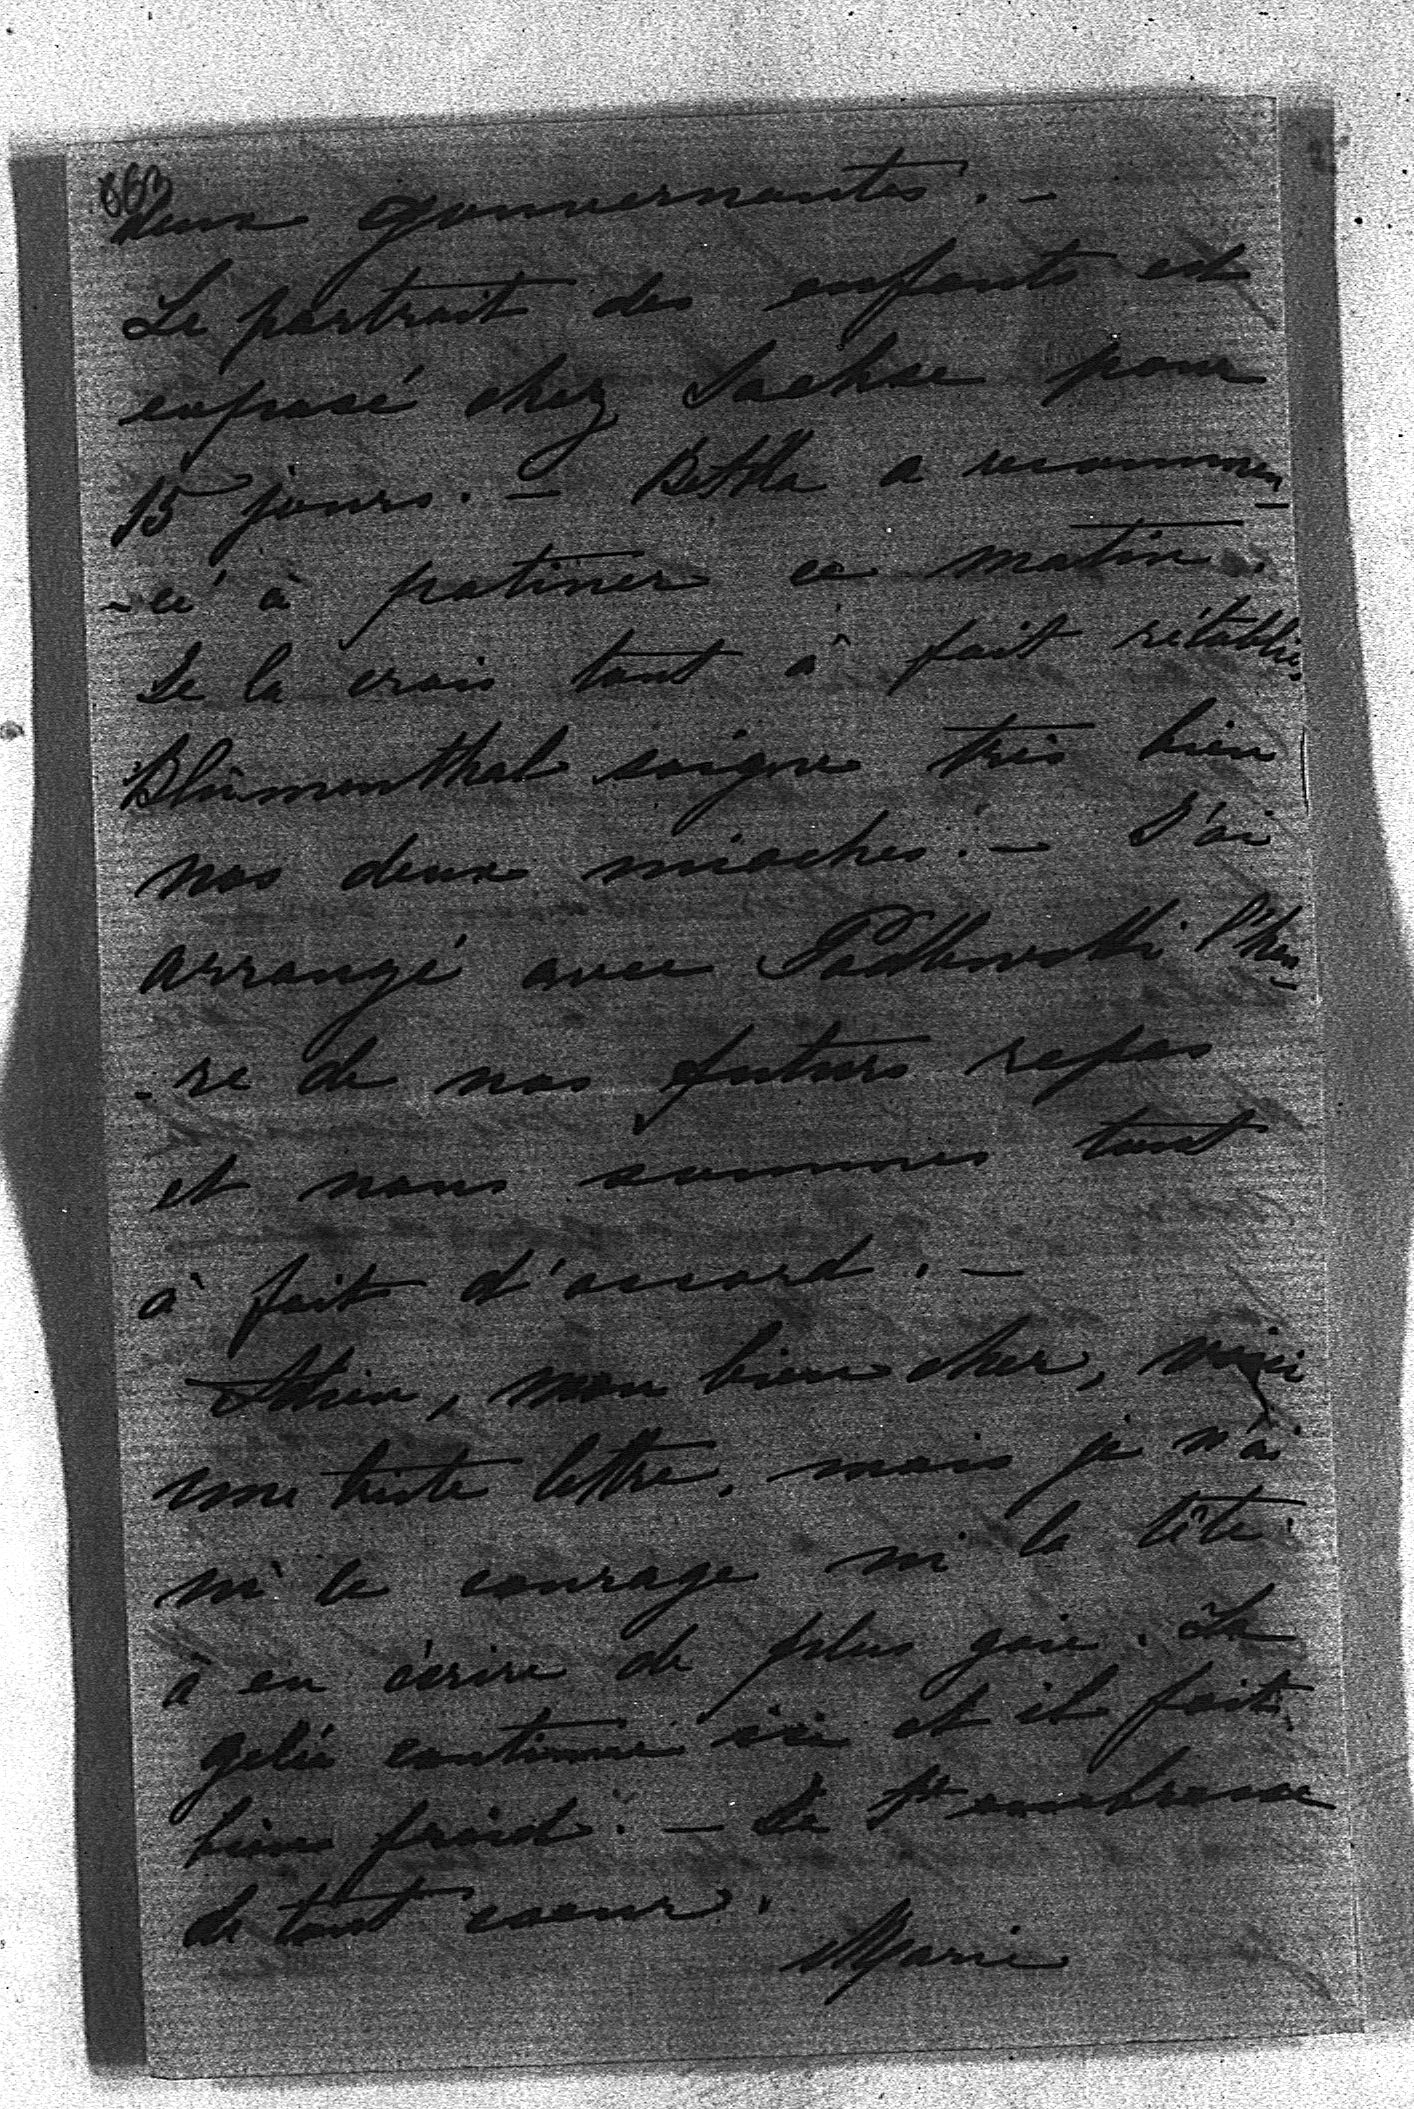 663
deux gouvernantes. —
Le portrait des enfants est
exposé chez Sachse pour
15 jours. — Betka a recommen-
-cé à patiner ce matin.
Je la crois tout à fait rétablie.
Blumenthal soigne très bien
nos deux mioches. — J'ai
arrangé avec Podlewski l'heu-
-re de nos futurs repas
et nous sommes tout
à fait d'accord. —
Adieu, mon bien cher, voici
une triste lettre, mais je n'ai
ni le courage ni la tête
à en écrire de plus gaie. La
gelée continue ici et il fait
bien froid. — Je t'embrasse
de tout coeur.
Marie